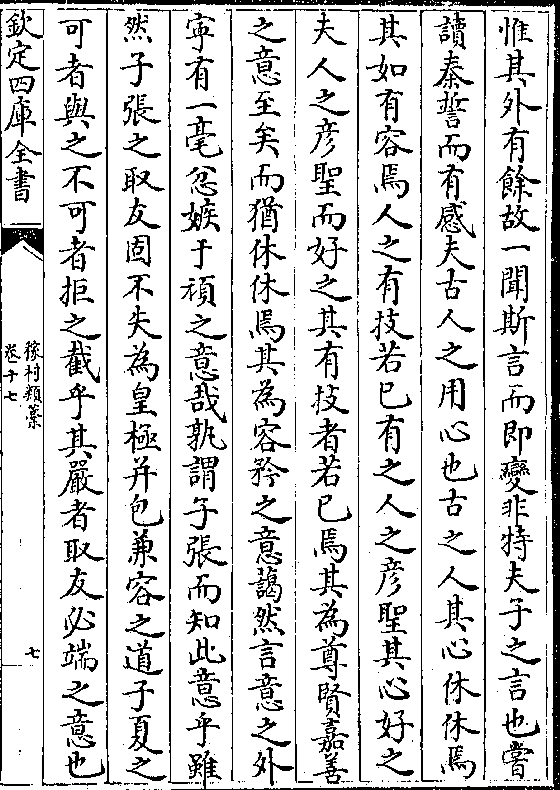 惟其外有餘故一聞斯言而即變非特夫子之言也嘗
讀秦誓而有感夫古人之用心也古之人其心休休焉
其如有容焉人之有技若已有之人之彦聖其心好之
夫人之彦聖而好之其有技者若已焉其為尊賢嘉善
之意至矣而猶休休焉其為容矜之意藹然言意之外
寜有一毫忿嫉于頑之意哉孰謂子張而知此意乎雖
然子張之取友固不失為皇極并包兼容之道子夏之
可者與之不可者拒之截乎其嚴者取友必端之意也
欽定四庫全書
稼村類藁
卷十七
七